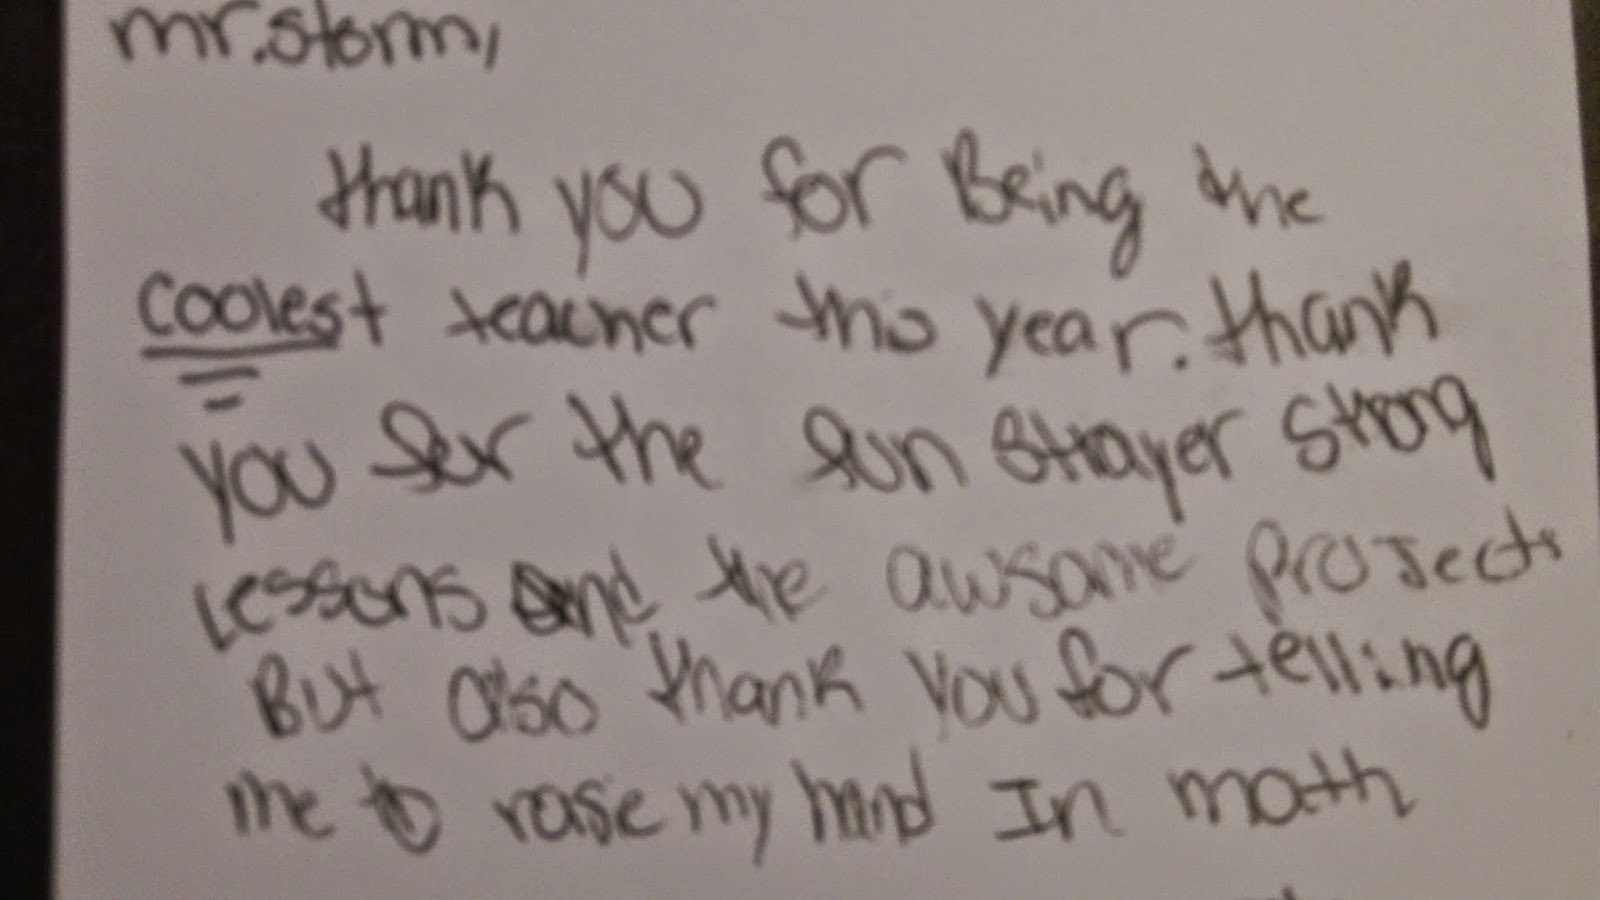 mr. storm,
thank you for Being the
coolest teacher this year. thank
you for the fun Strayer Strong
Lessons and the awsome projects
But also thank you for telling
me to rase my hand In math